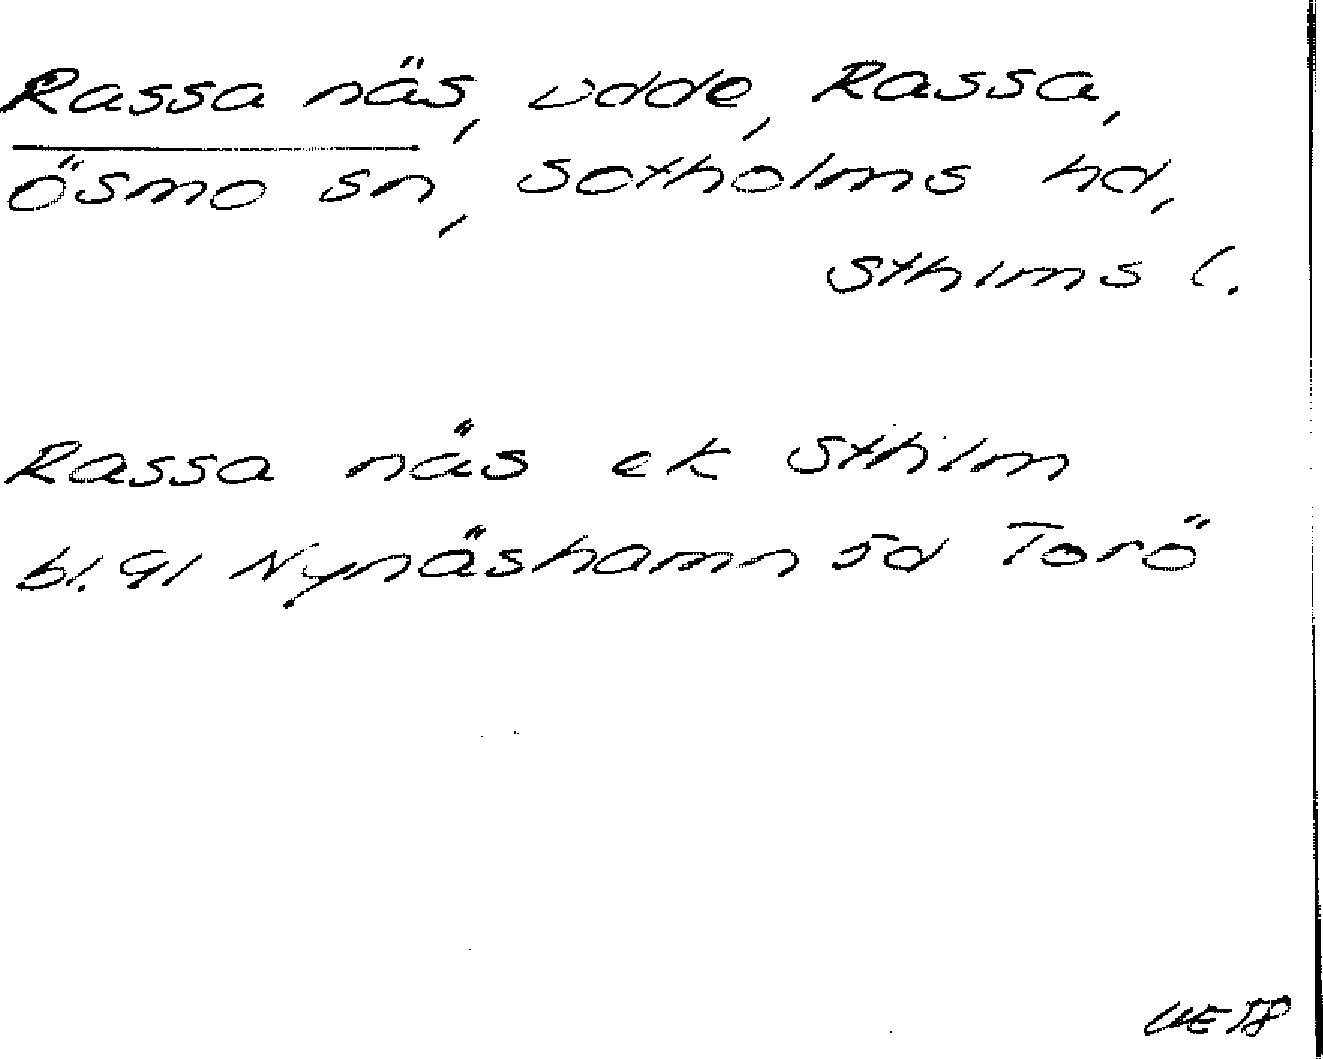 Rassa näs, udde, Rassa,
Ösmo sn, Sotholms hd,
Sthlms l.
Rassa näs ek Sthlm
bl. 91 Nynäshamn Sd Torö